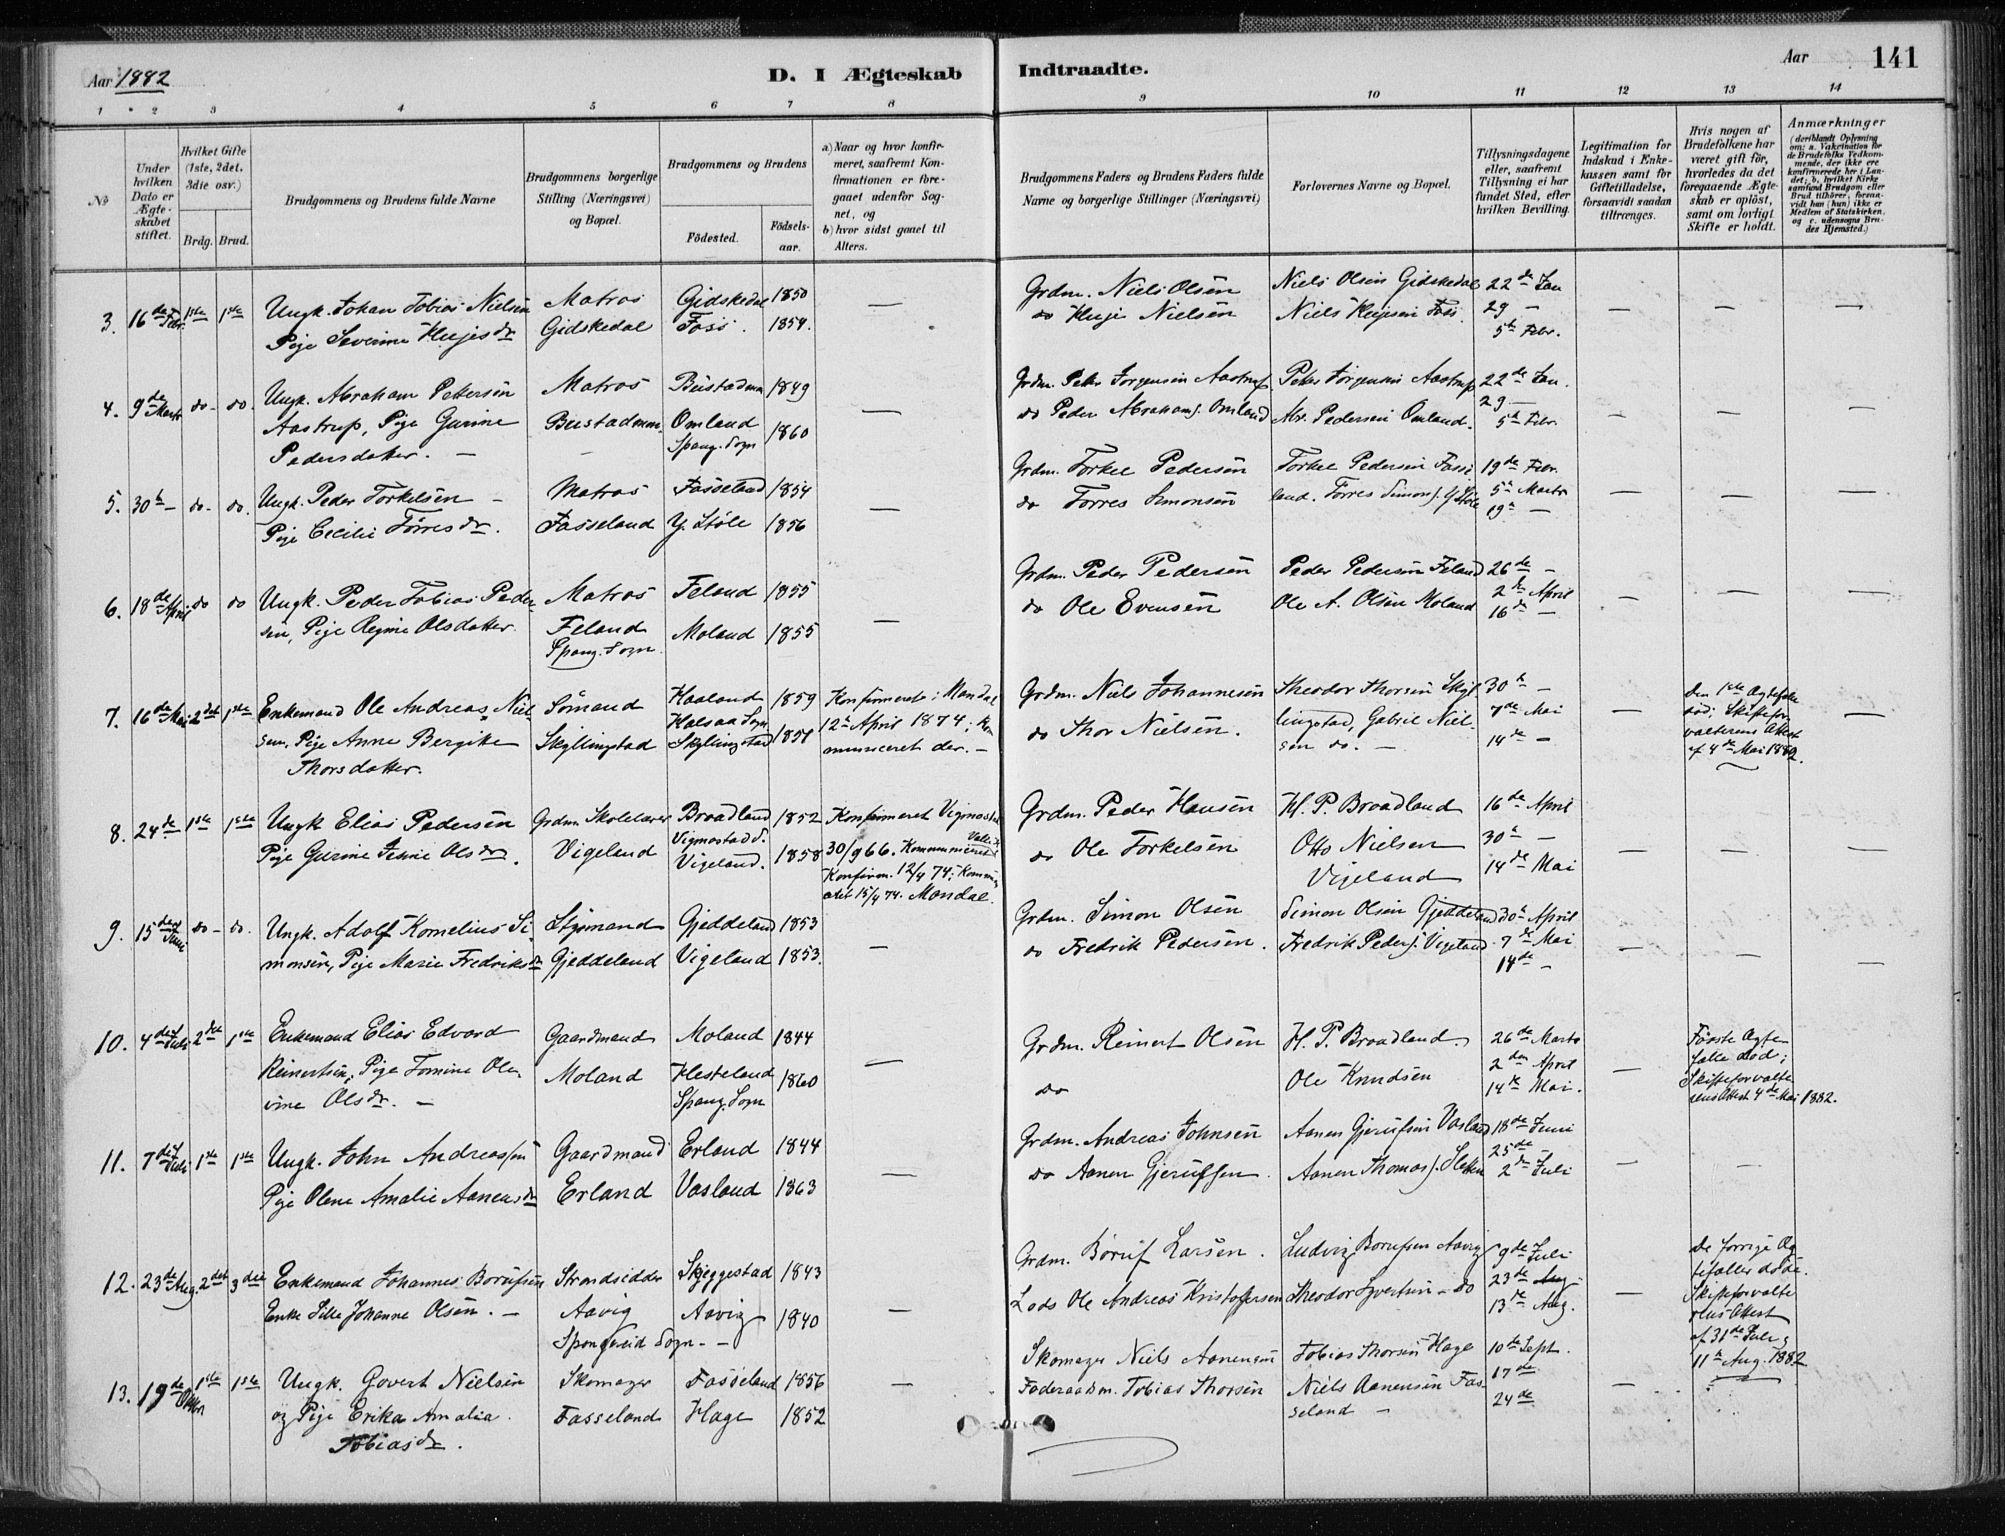 Aar 1882
D. I Ægteskab Indtraadte.
Aar 141
1 2 3 4 5 6 7 8 9 10 11 12 13 14
No
Under hvilken Dato er Ægteskabet stiftet.
Hvilket Gifte (1ste, 2det, 3die osv.)
Brdg. Brud.
Brudgommens og Brudens fulde Navne
Brudgommens borgerlige Stilling (Næringsvei) og Bopæl.
Brudgommens og Brudens
Fødested.
Fødsels-aar.
a) Naar og hvor konfirmeret, saafremt Konfirmationen er foregaaet udenfor Sognet, og
b) hvor sidst gaaet til Alters.
Brudgommens Faders og Brudens Faders fulde Navne og borgerlige Stillinger (Næringsvei)
Forlovernes Navne og Bopæl.
Tillysningsdagene eller, saafremt Tillysning ei har fundet Sted, efter hvilken Bevilling.
Legitimation for Indskud i Enkekassen samt for Giftetilladelse, forsaavidt saadan tiltrænges.
Hvis nogen af Brudefolkene har været gift før, hvorledes da det foregaaende Ægteskab er opløst, samt om lovligt Skifte er holdt.
Anmærkninger
3. 16de Febr. 1ste 1ste Ungk. Johan Tobias Nielsen Matros Gidskedal 1850 — Grdm. Niels Olsen Niels Olsen Gidskedal 22de Jan
Pige Severine dr Gidskedal Foss. 1854. do Nielsen Niels Foss 29 —
5te Febr.
4. 9de Marts do - do. Ungk. Abraham Pettersen Matros 1849 — Grdm. Peter Jørgensen Aastrup Peter Jørgensen Aastrup 22de Jan.
Aastrup, Pige Gurine Omland 1860 do Peder Abrahams. Omland Abr. Pedersen Omland. 29 —
Pedersdatter. — Spang. Sogn 5te Febr.
5. 30te — do - do. Ungk. Peder Torkelsen — Matros Fasseland 1854 — Grdm. Torkel Pedersen Torkel Pedersen Fasse 19de Febr.
Pige Cecilie Tørresdr. Fasseland Y. Støle 1856 do Tørres Simonsen land. Tørres Simons. Y Støle 5te Marts
19de —
6. 18de April do do Ungk. Peder Tobias Peder- Matros Feland 1855 — Grdm. Peder Pedersen Peder Pedersen Feland 26de —
sen, Pige Regine Olsdatter Feland Moland 1855 do Ole Evensen Ole A. Olsen Moland 2de April
Spang. Sogn. 16de —
7. 16de Mai 2det 1ste Enkemand Ole Andreas Niel- Sømand Haaland 1859 Konfirmeret i Mandal Grdm. Niels Johannesen Theodor Thorsen Skyl- 30te —
sen, Pige Anne Bergitte Skyllingstad Halsaa Sogn 12te April 1874, kom- do Thor Nielsen. lingstad, Gabriel Niel- 7de Mai
Thorsdatter. Skyllingstad municeret der. — sen do. — 14de —
Den 1ste Ægtefælle død; Skiftefor-
valterens Attest
af 4de Mai 1882.
8. 24de 1ste 1ste Ungk Elias Pedersen Grdm. Skolelærer Broadland 1852 Konfirmeret Vigmostad Grdm. Peder Hansen H. P. Broadland 16de April
Pige Gurine Olsdr. Vigeland Vigmostad S. 30/9 66. do Ole Torkelsen Otto Nielsen 30te —
Vigeland. 1858 Konfirm. 12/4 74; Kommu Vigeland 14de Mai
15/4 74. Mandal.
9. 15de Juni do - do. Ungk. Adolf Kornelius Si- Styrmand Gjeddeland 1853 — Grdm. Simon Olsen Simon Olsen Gjeddeland 30te April
monsen, Pige Marie Fredriksdr Gjeddeland Vigeland 1853. do Fredrik Pedersen. Fredrik Peders. Vigeland 7de Mai
14de —
10. 4de Juli 2det 1ste Enkemand Elias Edvard Gaardmand Moland 1844 — Grdm. Reinert Olsen H. P. Broadland. 26de Marts
Reinertsen, Pige Tomine Ole- Moland Hesteland 1860 do Ole Knudsen 2den April
vine Olsdr. — Spang. Sogn 14de Mai.
Første Ægte
fælle død;
Skifteforvalte
rens Attest 4de Mai 1882.
11. 7de Juli 1ste 1ste Ungk. John Andreassen Gaardmand Erland 1844 — Grdm. Andreas Johnsen Aanen Gjerulfsen Vasland 18de Juni
Pige Olene Amalie Aanensdr Erland Vasland 1863 do Aanen Gjerulfsen. Aanen Thomas. 25de —
2de Juli
12. 23de Aug. 2det 3die Enkemand Johannes Børufsen Strandsidder Skjeggestad 1843 — Grdm. Børuf Larsen. Ludvig Børufsen Aavig 9de Juli
Enke Johanne Olsen. — Aavig Aavig 1840 Lods Ole Andreas Kristoffersen Theodor Syvertsen — do 23de Aug
Spangereid Sogn. — 13de Aug.
De forrige Æg-
tefæller døde.
Skifteforvalte
rens Attest
af 31de Juli &
11te Aug. 1882
13. 19de Oktbr 1ste 1ste Ungk. Govert Nielsen Skomager Fasseland 1856 — Skomager Niels Aanensen Tobias Thorsen Hage 10de Sept.
og Pige Erika Amalia Fasseland Hage 1852 Føderaadsm. Tobias Thorsen Niels Aanensen Fas- 17de
Tobiasdr. seland — 24de